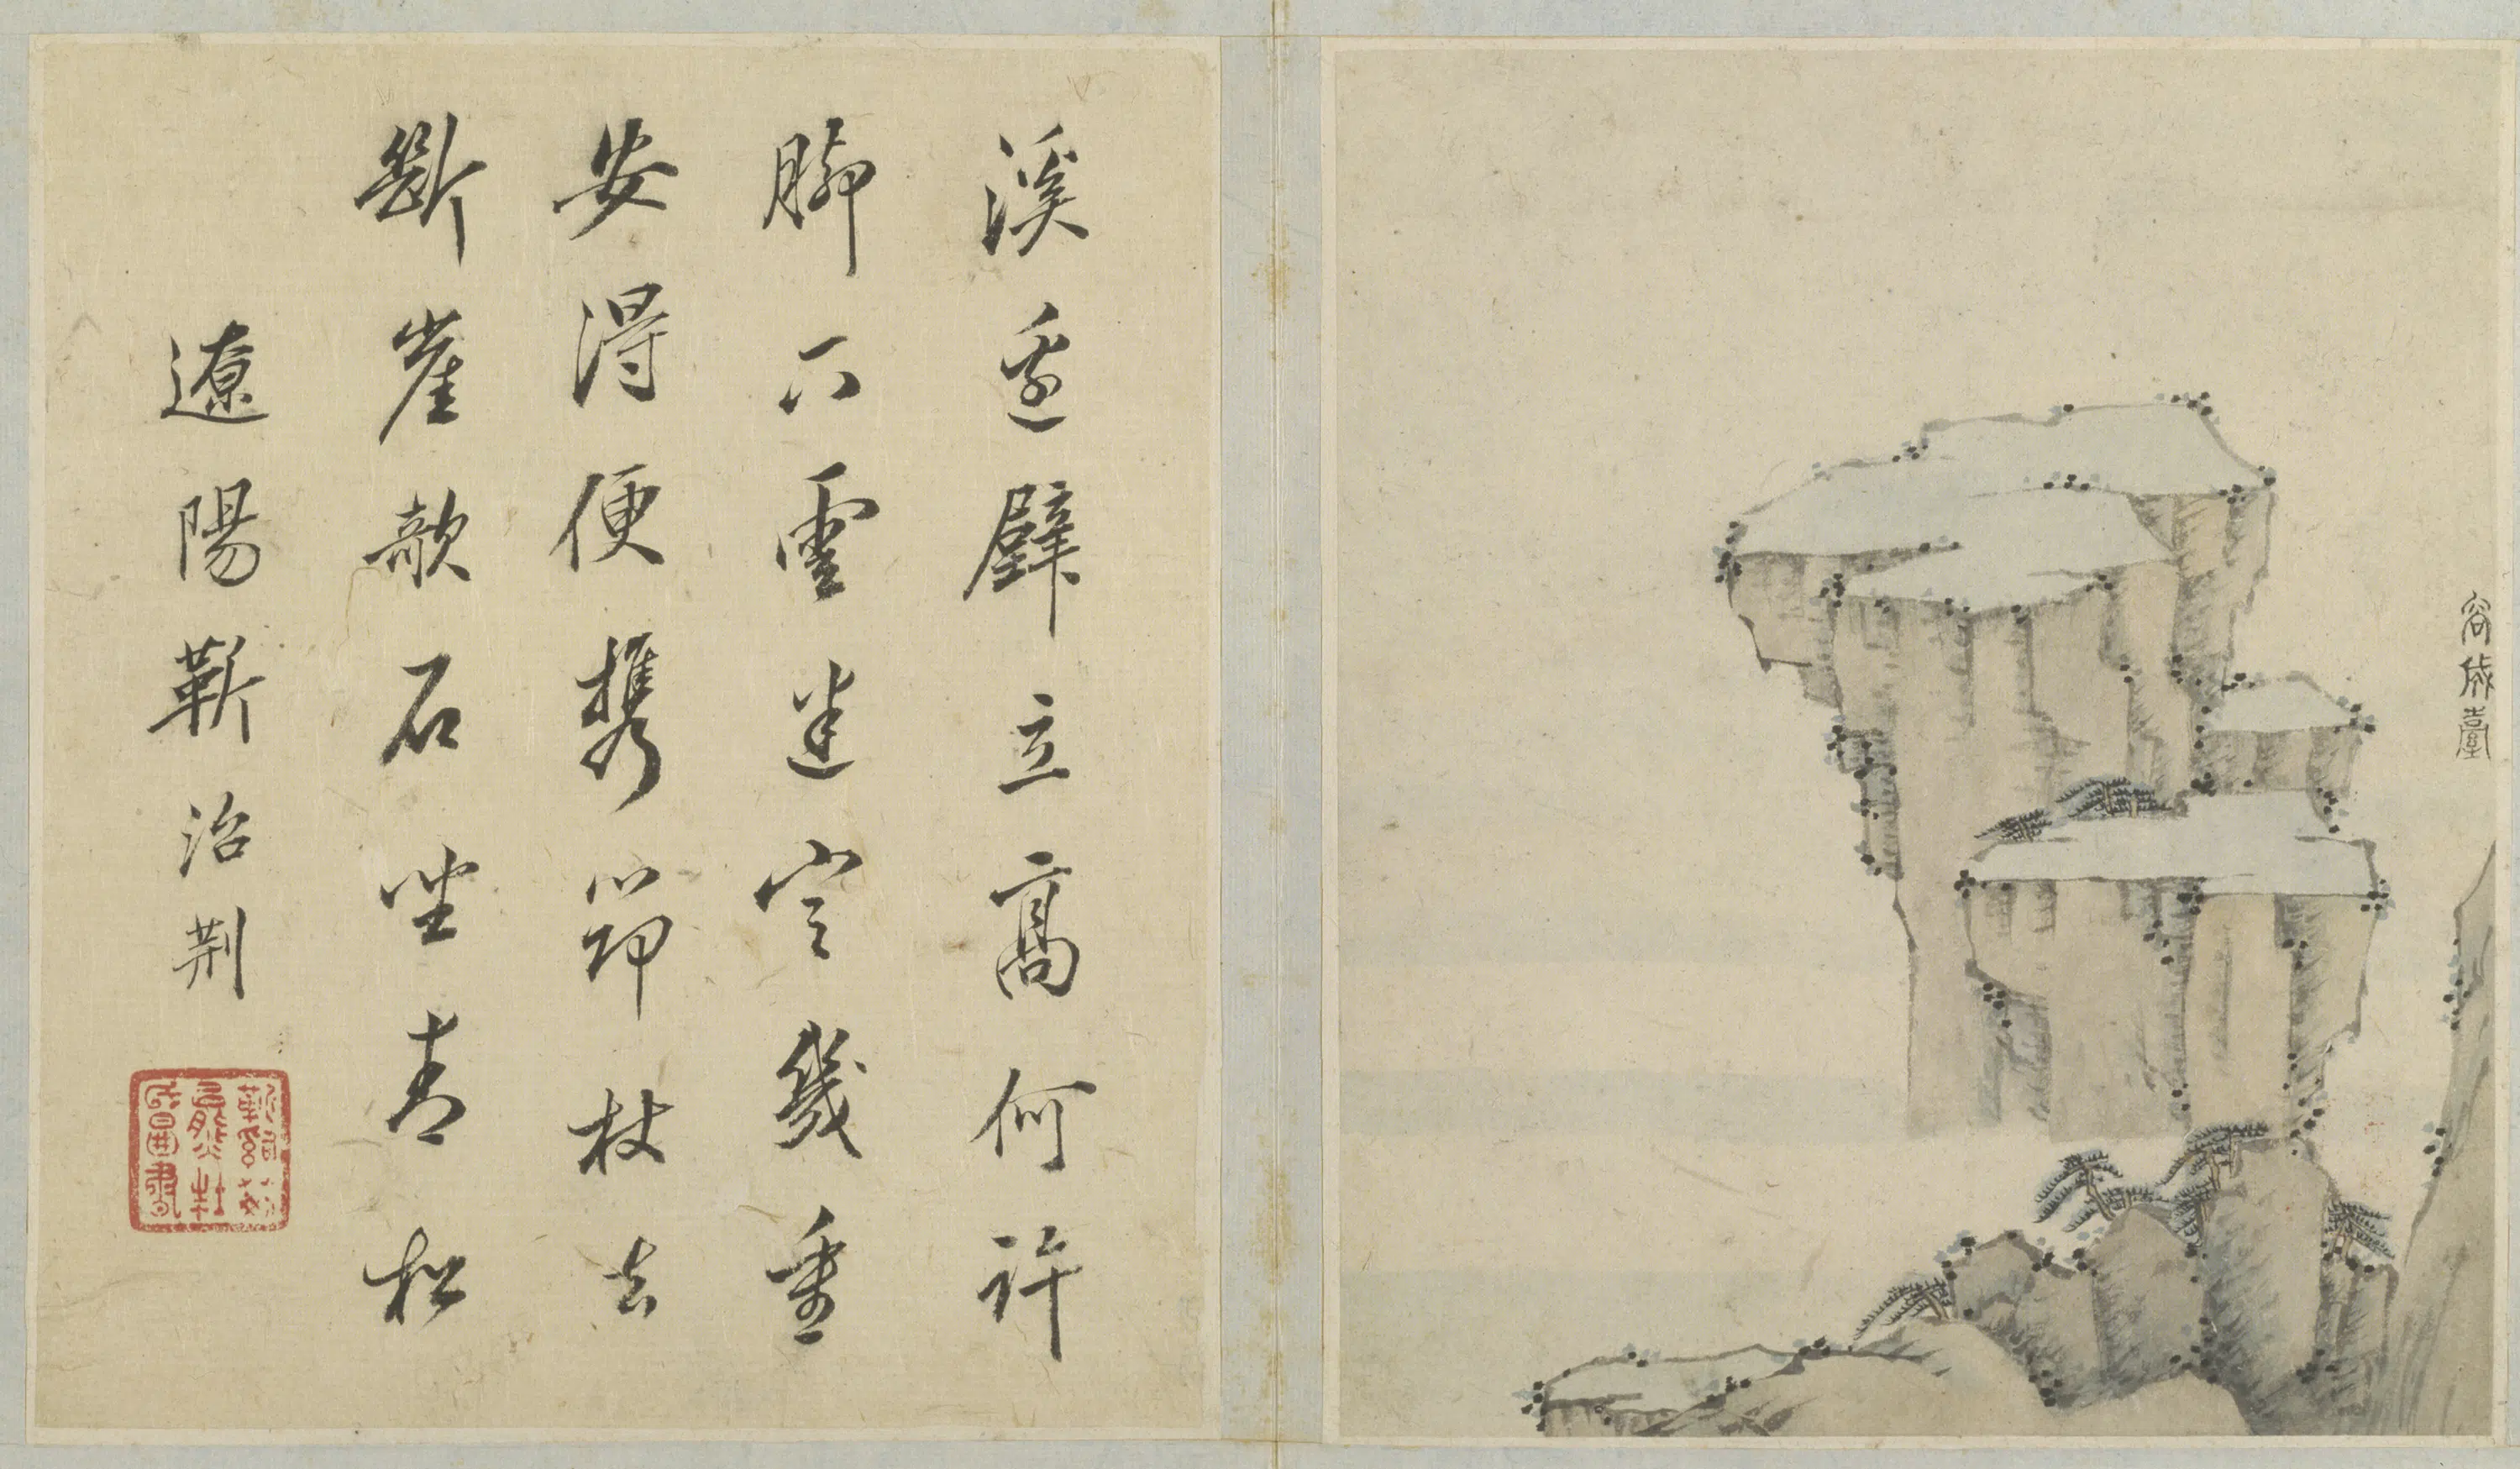 容成臺
溪邊壁立高何許
脚下雲迷定幾重
安得便攜筇杖去
斷崖欹石坐青松
遼陽靳治荆